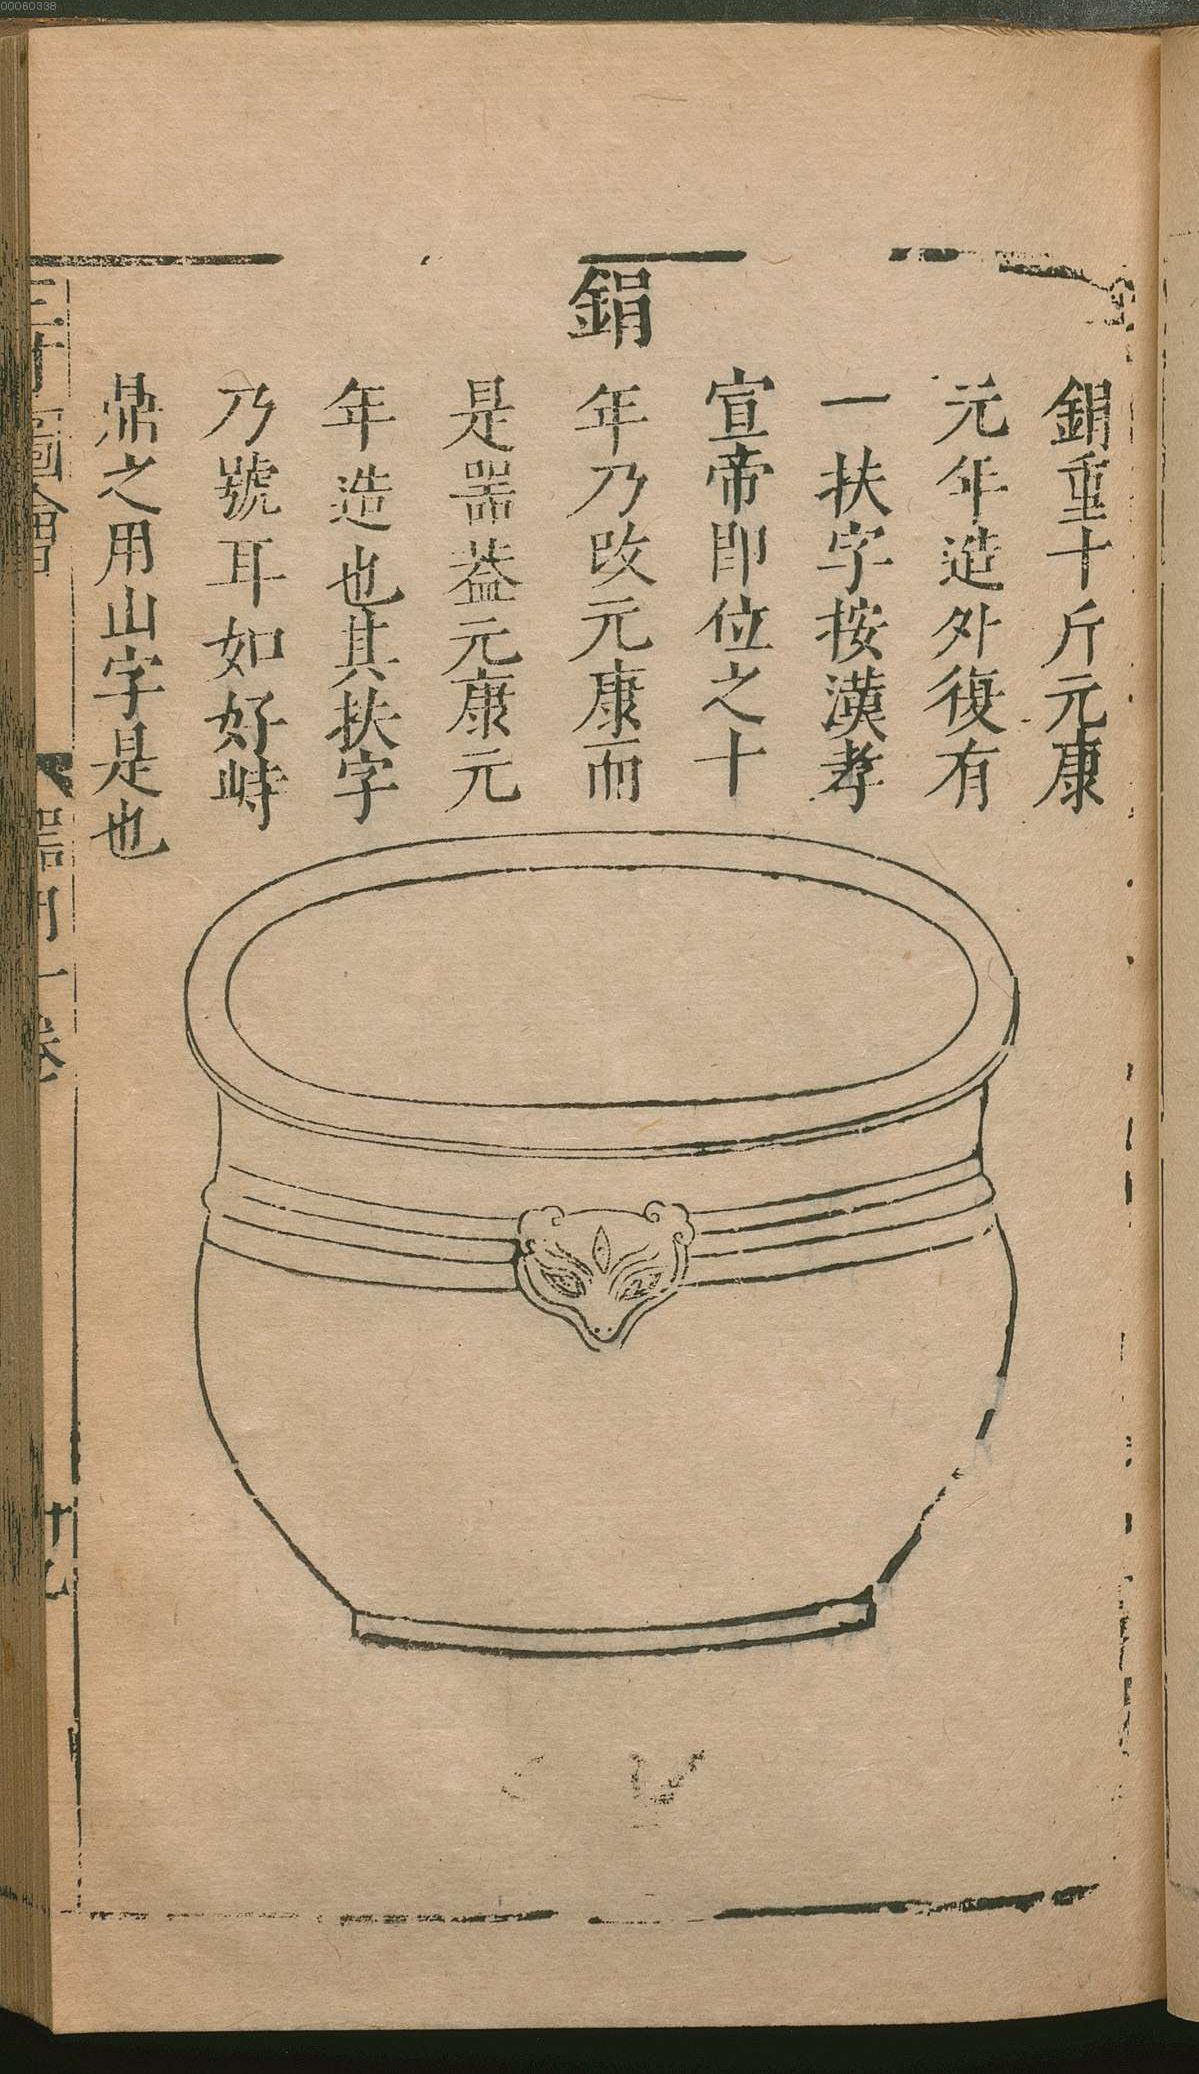 00060338
鋗
鋗重十斤元康
元年造外復有
一扶字按漢孝
宣帝即位之十
年乃改元康而
是器葢元康元
年造也其扶字
乃號耳如好畤
鼎之用山字是也
三才圖會
器用一卷
十九